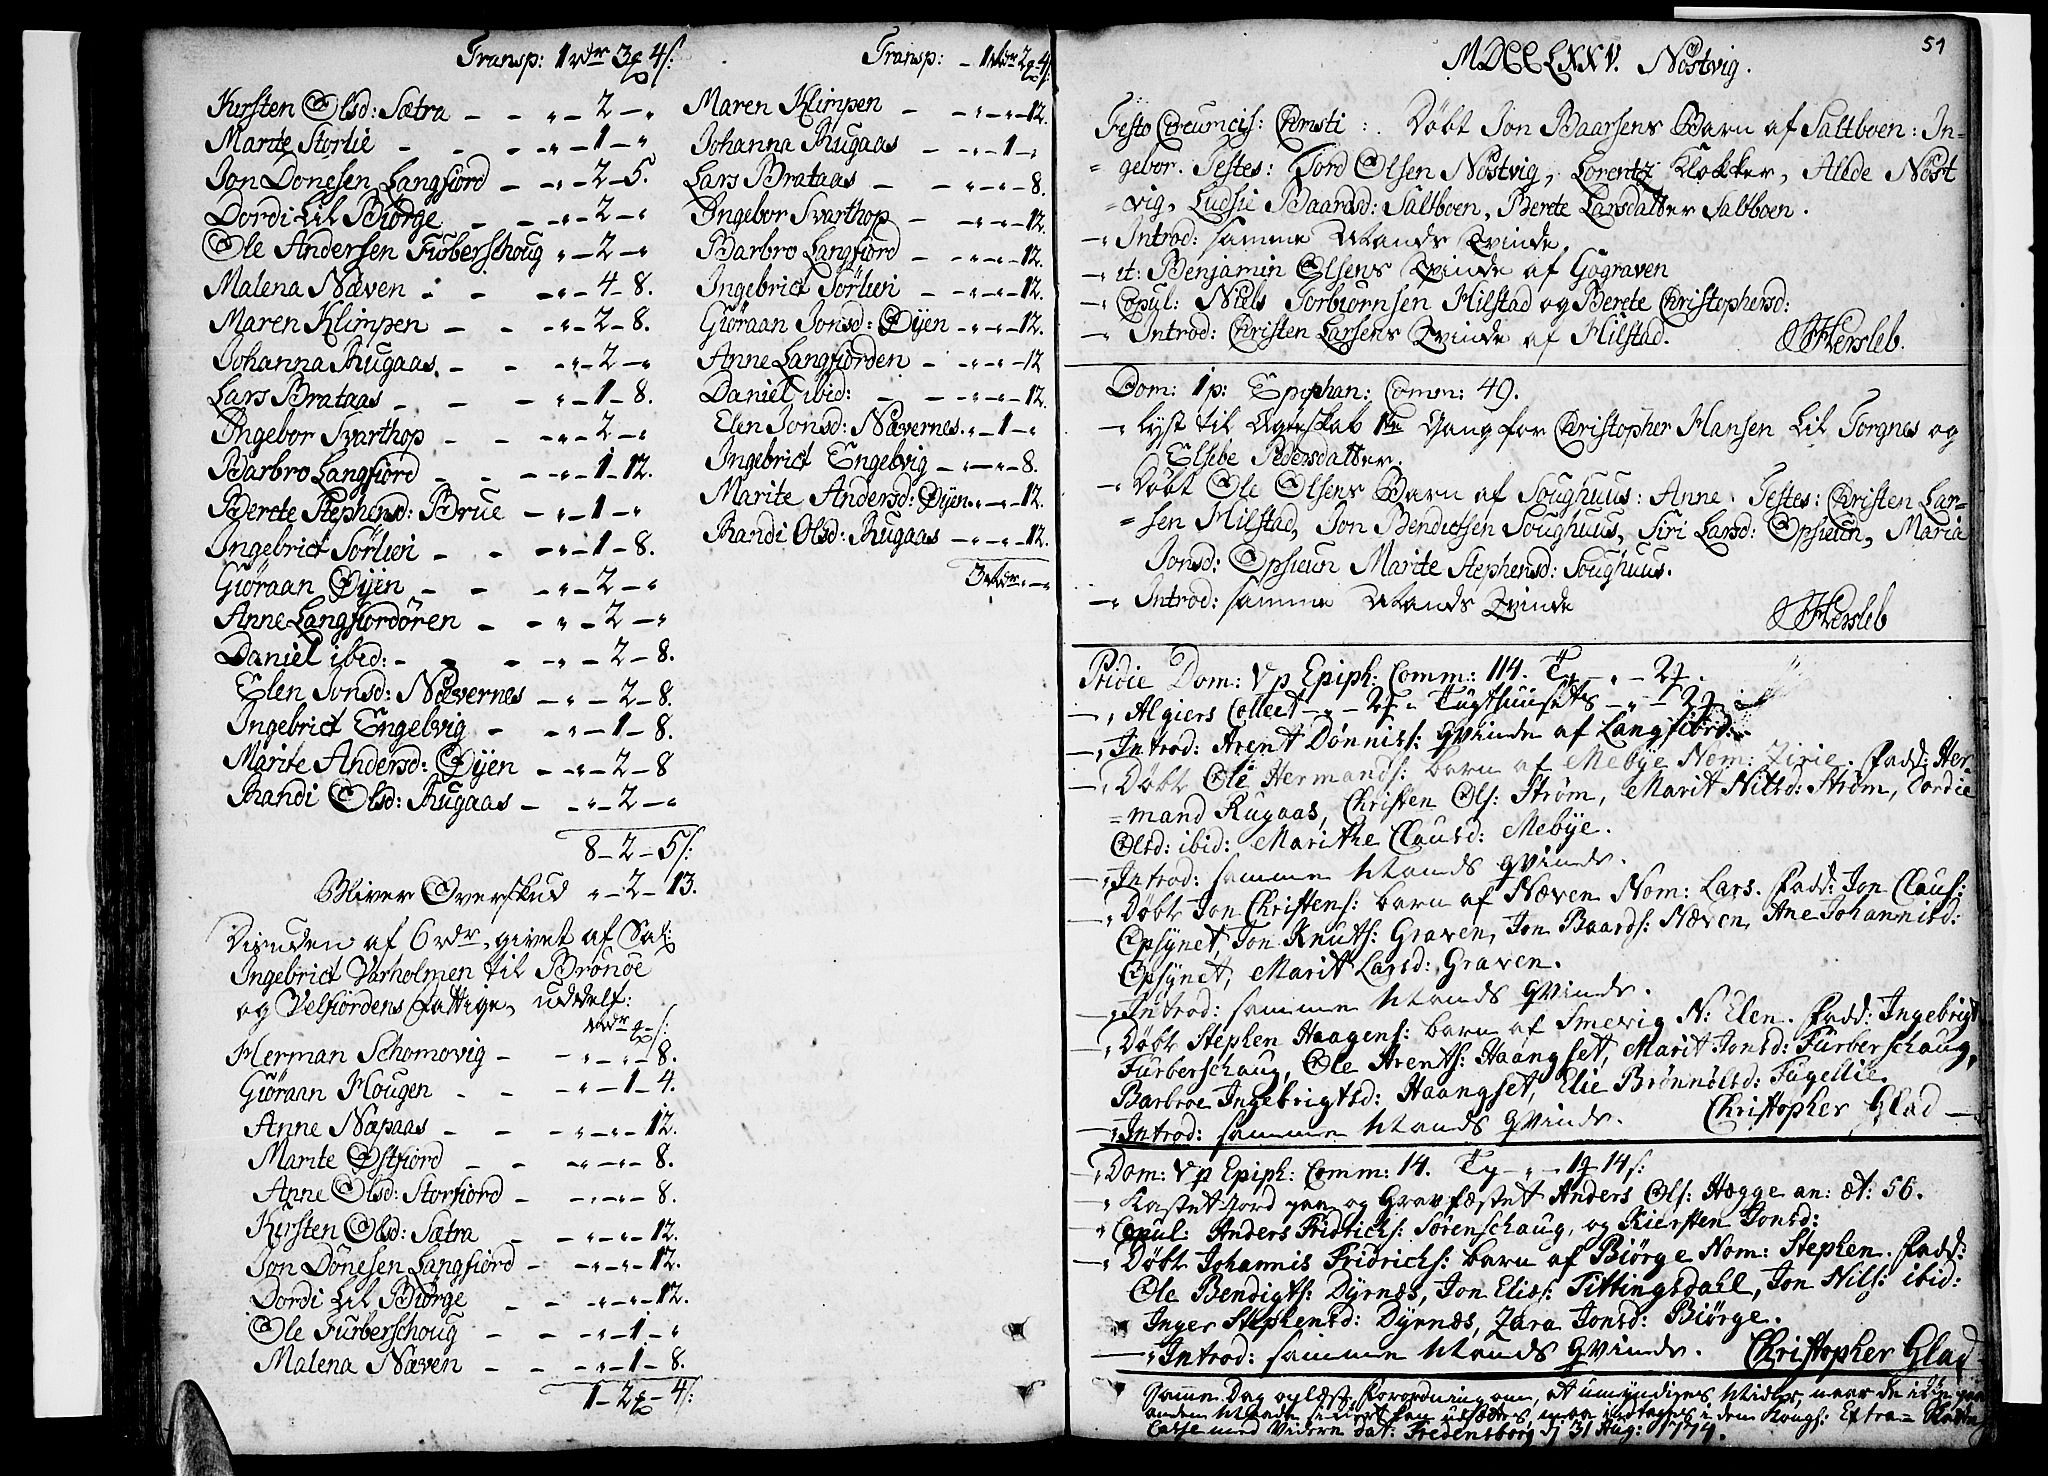 Transp: 1 rdr 3 4 s:
Kirsten Olsd: Sætra - - „ - 2 - „
Marite Storlie - - - „ - 1 - „
Jon Donesen Langfiord - - „ - 2 - 5.
Dordi Lil Biörge - - - „ - 2 - „
Ole Andersen Furberschoug „ - 2 - „
Malena Næven - - - „ - 4 - 8.
Maren Klimpen - - - „ - 2 - 8.
Johanna Rugaas - - „ - 2 - „
Lars Brataas - - - „ - 1 - 8.
Ingebor Svarthop - - - „ - 2 - „
Barbro Langfiord - - - „ - 1 - 12.
Berete Stephensd: Brue - „ - 1 - „
Ingebrict Sörlien - - - „ - 1 - 8.
Giöraan Øÿen - - - „ - 2 - „
Anne Langfiordören - - „ - 2 - „
Daniel ibid: - - - „ - 2 - 8.
Elen Jonsd: Nævernes - „ - 2 - 8.
Ingebrict Engelvig - - „ - 1 - 8.
Marite Andersd: Øÿen - „ - 2 - 8
Randi Olsd: Rugaas - - „ - 2 - „
8 - 2 - 5 s:
Bliver Overskud „ - 2 - 13.
Disuden af 6 rdr, givet af Sal:
Ingebrict Varholmen til Brönöe
og Velfiordens fattige, uddelt:
rdr - s:
Herman Schomovig - - „ - „ - 8.
Giöraan Hougen - - - „ - 1 - 4.
Anne Næpaas - - - „ - „ - 12.
Marite Østfiord - - „ - „ - 8.
Anne Olsd: Storfiord - - „ - „ - 8.
Kirsten Olsd: Sætra - - „ - „ - 12.
Jon Dönesen Langfiord - „ - „ - 12.
Dordi Lil Biörge - - „ - „ - 12.
Ole Furberschoug - - „ - 1 - „
Malena Næven - - - „ - 1 - 8.
1 - 2 - 4 s:
Transp: - 1 rdr 2 4 s:
Maren Klimpen - - „ - „ - 12.
Johanna Rugaas - - „ - 1 - „
Lars Brataas - - „ - „ - 8.
Ingebor Svarthop - „ - „ - 12.
Barbro Langfiord - „ - „ - 12.
Ingebrict Sörlien - - „ - „ - 12.
Giöraan Jonsd: Øÿen - „ - „ - 12.
Anne Langfiorden - - „ - „ - 12
Daniel ibid: - - „ - „ - 12.
Elen Jonsd: Nævernes „ - 1 - „
Ingebrict Engelvig - „ - „ - 8.
Marite Andersd: Øÿen „ - „ - 12.
Randi Olsd: Rugaas - „ - „ - 12.
3 rdr „ - „
51
MDCCLXXV. Nöstvig.
Festo Circumcis: Christi :. Döbt Jon Baarsens Barn af Saltboen: In-
=gebor. Testes: Tord Olsen Nöstvig, Lorentz Klokker, Allde Nöst
=vig, Ludsie Baardsd: Saltboen, Berete Larsdatter Saltboen.
-„ Introd: samme Mands Qvinde.
-„ it: Benjamin Olsens Qvinde af Gograven
-„ Copul: Niels Torbiörnsen Hilstad og Berete Christophersd:
-„ Introd: Christen Larsens Qvinde af Hilstad. Hersleb.
Dom: 1 p: Epiphan: Comm: 49.
-„ lyst til Ægteskab 1te Gang for Christopher Hansen Lil Torgnes og
Elsebe Pedersdatter.
-„ Döbt Ole Olsens Barn af Soughuus: Anne. Testes: Christen Lar-
=sen Hilstad, Jon Bendictsen Soughuus, Siri Larsd: Opsieun, Maria
Jonsd: Opsieun Marite Stephensd: Soughuus.
-„ Introd: samme Mands Qvinde Hersleb
Pridie Dom: V p Epiph: Comm: 114. T - „ - 2
-„ Algiers Collect - „ - 2 „ Tugthuusets - „ - 2
-„ Introd: Arent Dönnis: Qvinde af Langfiord:
-„ Döbt Ole Hermands: barn af Mebye Nom: Zirie. Fadd: Her-
=mand Rugaas, Christen Ols: Ström, Marit Nilsd: Ström, Dordie
Olsd: ibid: Marithe Clausd: Mebye.
-„ Introd: samme Mands Qvinde.
-„ Döbt Jon Christens: barn af Næven Nom: Lars. Fadd: Jon Claus:
Opsynet, Jon Knuts: Graven, Jon Baards: Næven, Ane Johannisd:
Opsynet, Marit Larsd: Graven.
-„ Introd: samme Mands Qvinde.
-„ Döbt Stephen Haagens: barn af Smevig N: Elen. Fadd: Ingebrigt
Furberschaug, Ole Arents: Haangset, Marit Jonsd: Furberschaug,
Barbroe Ingebrigtsd: Haangset, Elie Brönnölsd: Fugellie.
-„ Introd: samme Mands Qvinde. Christopher Glad
-„ Dom: V p Epiph: Comm: 14. T - „ - 1 14 s:
„ Kastet Jord paa og Gravfæstet Anders Ols: Hægge an: æt: 56.
„ Copul: Anders Fridrichs: Sörenschaug, og Kiersten Jonsd:
-„ Döbt Johannis Fridrichs: barn af Biörge Nom: Stephen. Fadd:
Ole Bendigts: Dyrnæs, Jon Elias: Tittingsdahl, Jon Nils: ibid:
Inger Stephensd: Dyrnæs, Zara Jonsd: Biörge.
-„ Introd: samme Mands Qvinde. Christopher Glad
Samme Dag oplæst Forordning om, at umyndiges Midler, naar de
anden kan udsættes, maa indtages i den Kongl: Extra=
Casse mod Videre dat: Fredensborg d 31 Aug: 1774.